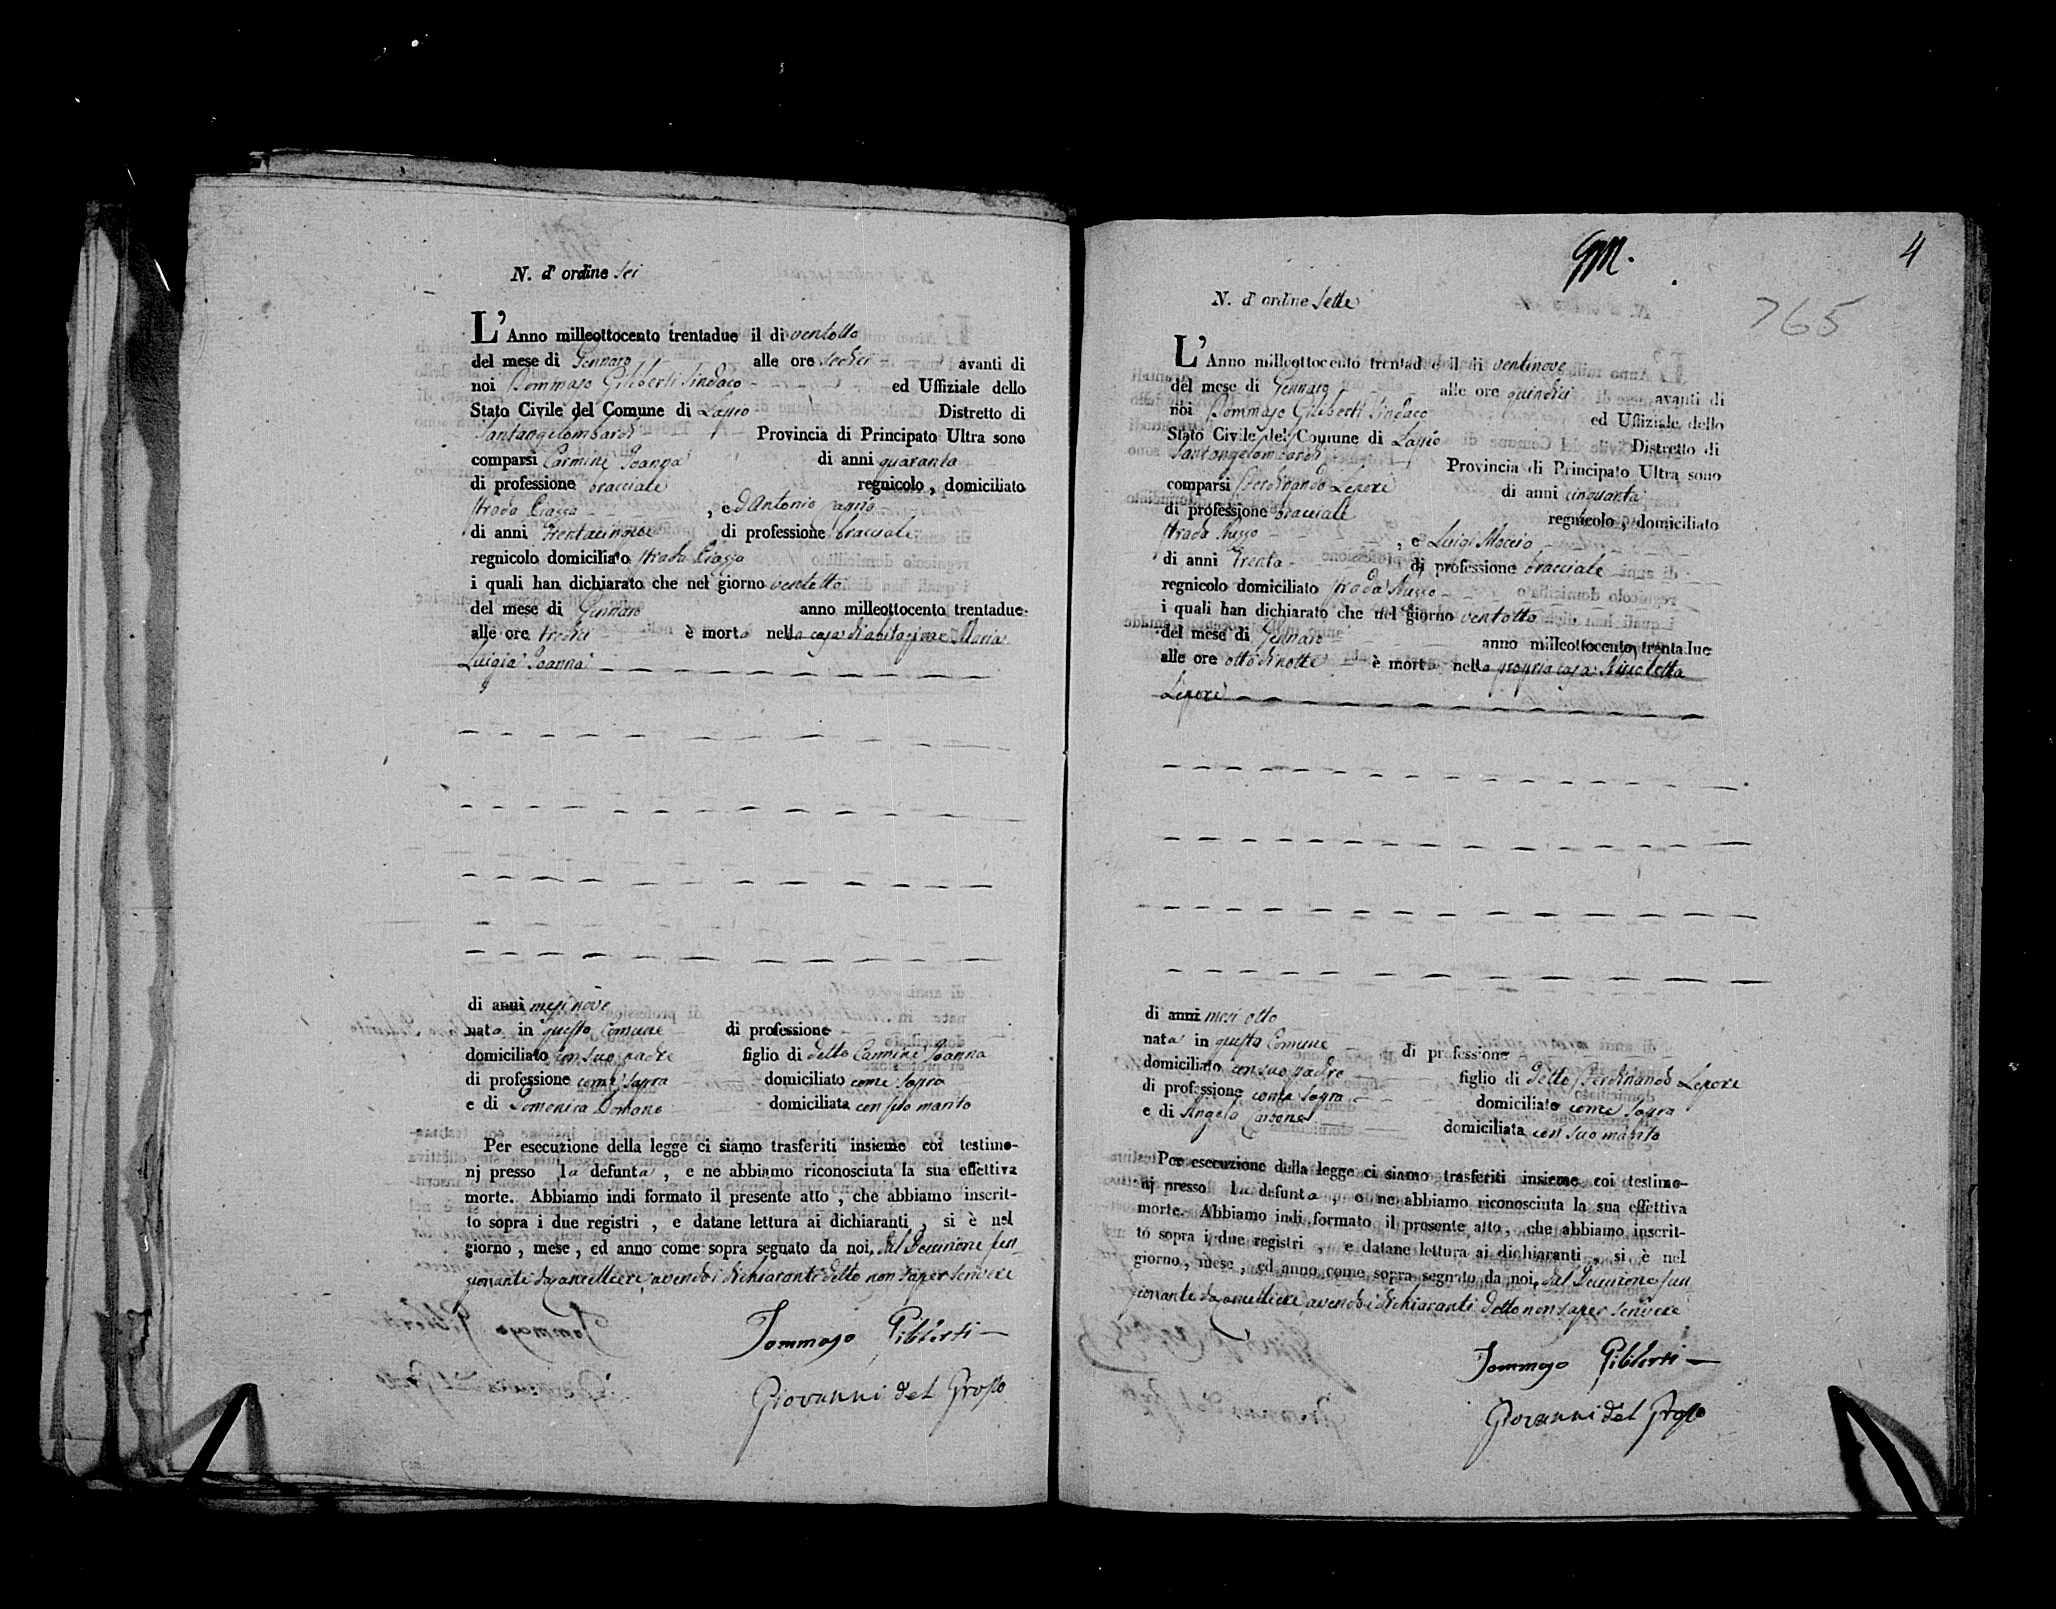 N. d' ordine sei
L'Anno milleottocento trentadue il dì ventotto
del mese di Gennaro alle ore sedici avanti di
noi Tommaso Giliberti Sindaco ed Uffiziale dello
Stato Civile del Comune di Distretto di
Santangelombardi Provincia di Principato Ultra sono
comparsi Carmine Ioanna di anni quaranta
di professione bracciale regnicolo, domiciliato
strada , e d'Antonio
di anni trentacinque di professione bracciale
regnicolo domiciliato strada
i quali han dichiarato che nel giorno ventotto
del mese di Gennaro anno milleottocento trentadue
alle ore tredici è morta nella casa di abitazione Maria
Luigia Ioanna
di anni mesi nove
nata in questo Comune di professione
domiciliato con suo padre figlio di detto Carmine Ioanna
di professione come sopra domiciliato come sopra
e di Domenica domiciliata con suo marito
Per esecuzione della legge ci siamo trasferiti insieme coi testimo-
nj presso la defunta, e ne abbiamo riconosciuta la sua effettiva
morte. Abbiamo indi formato il presente atto, che abbiamo inscrit-
to sopra i due registri, e datane lettura ai dichiaranti, si è nel
giorno, mese, ed anno come sopra segnato da noi, dal Decurione fun
zionante da cancelliere avendo i dichiaranti detto non saper scrivere
Tommaso Giliberti
Giovanni del Grosso
4
765
N. d' ordine sette
L'Anno milleottocento trentad e il dì ventinove
del mese di Gennaro alle ore quindici avanti di
noi Tommaso Giliberti Sindaco ed Uffiziale dello
Stato Civile del Comune di Distretto di
Santangelombardi Provincia di Principato Ultra sono
comparsi Ferdinando Lepore di anni cinquanta
di professione bracciale regnicolo, domiciliato
strada , e Luigi
di anni trenta di professione bracciale
regnicolo domiciliato strada
i quali han dichiarato che nel giorno ventotto
del mese di Gennaro anno milleottocento trentadue
alle ore otto di notte è morta nella propria casa Nicoletta
Lepore
di anni mesi otto
nata in questo Comune di professione
domiciliato con suo padre figlio di detto Ferdinando Lepore
di professione come sopra domiciliato come sopra
e di Angela domiciliata con suo marito
Per esecuzione della legge ci siamo trasferiti insieme coi testimo-
nj presso la defunta, e ne abbiamo riconosciuta la sua effettiva
morte. Abbiamo indi formato il presente atto, che abbiamo inscrit-
to sopra i due registri, e datane lettura ai dichiaranti, si è nel
giorno, mese, ed anno come sopra segnato da noi, dal Decurione fun
zionante da cancelliere avendo i dichiaranti detto non saper scrivere
Tommaso Giliberti
Giovanni del Grosso